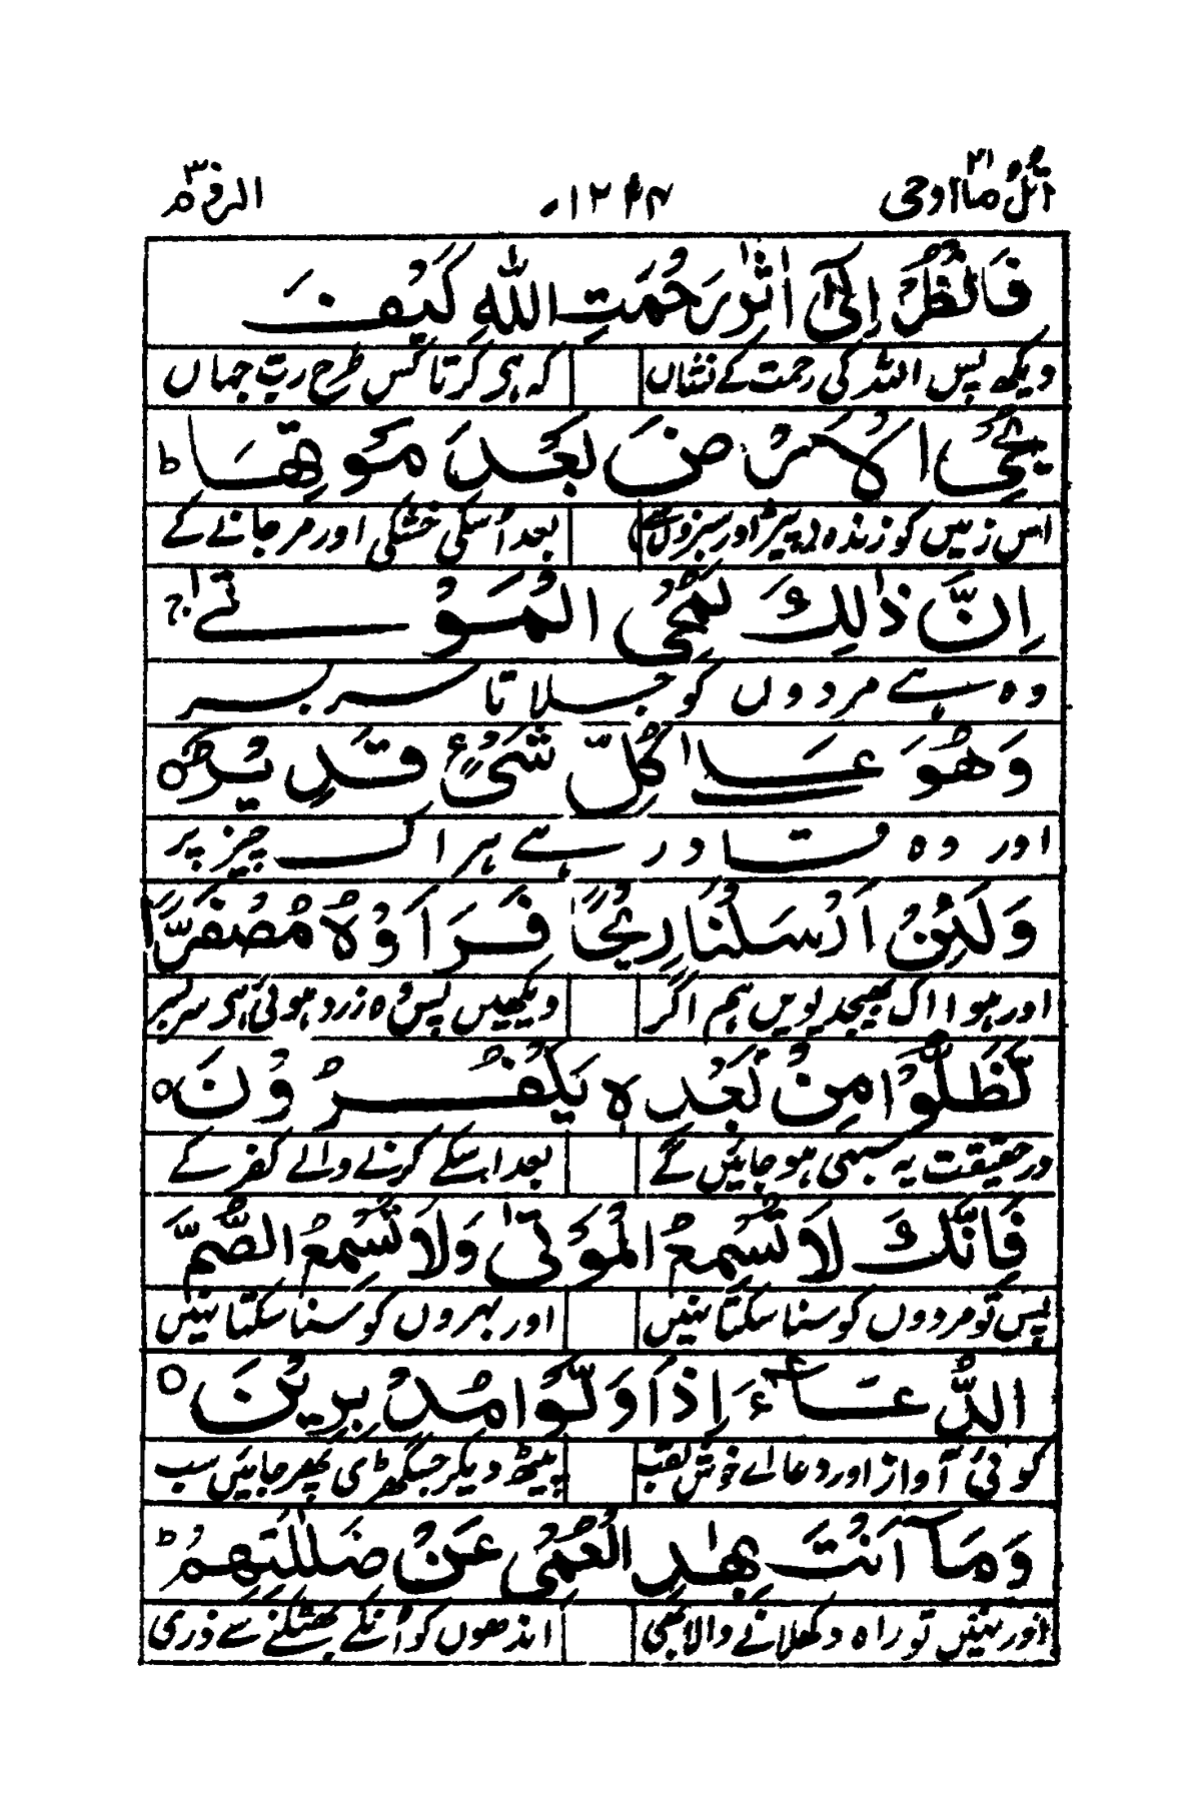 اتل ما اوحی ۲۱ ۱۲۴۴ الروم ۳۰
فَانْظُرْ اِلٰٓی اٰثٰرِ رَحْمَتِ اللّٰهِ كَیْفَ
دیکھ پس اللہ کی رحمت کے نشاں کہ ہی کرتا کس طرح رب جہاں
یُحْیِ الْاَرْضَ بَعْدَ مَوْتِهَا ؕ
اس زمیں کو زندہ پیڑ اور سبزوں سے بعد اُسکی خشکی اور مر جانے کے
اِنَّ ذٰلِكَ لَمُحْیِ الْمَوْتٰی ۚ
وہ ہے مردوں کو جلاتا سربسر
وَهُوَ عَلٰی كُلِّ شَیْءٍ قَدِیْرٌ ۝
اور وہ قادر ہے ہر اک چیز پر
وَلَئِنْ اَرْسَلْنَا رِیْحًا فَرَاَوْهُ مُصْفَرًّا
اور ہوا اک بھیجدیویں ہم اگر دیکھیں پس وہ زرد ہوئی ہی سربسر
لَّظَلُّوْا مِنْۢ بَعْدِهٖ یَكْفُرُوْنَ ۝
درحقیقت یہ سبھی ہو جائیں گے بعد اسکے کرنے والے کفر کے
فَاِنَّكَ لَا تُسْمِعُ الْمَوْتٰی وَلَا تُسْمِعُ الصُّمَّ
پس تو مردوں کو سنا سکتا نہیں اور بہروں کو سنا سکتا نہیں
الدُّعَآءَ اِذَا وَلَّوْا مُدْبِرِیْنَ ۝
کوئی آواز اور دعا اے خوش لقب پیٹھ دیکر جسگھڑی پھر جائیں سب
وَمَاۤ اَنْتَ بِهٰدِ الْعُمْیِ عَنْ ضَلٰلَتِهِمْ ؕ
اور نہیں تو راہ دکھلانے والا بھی اندھوں کو اُنکے بھٹکنے سے ذری